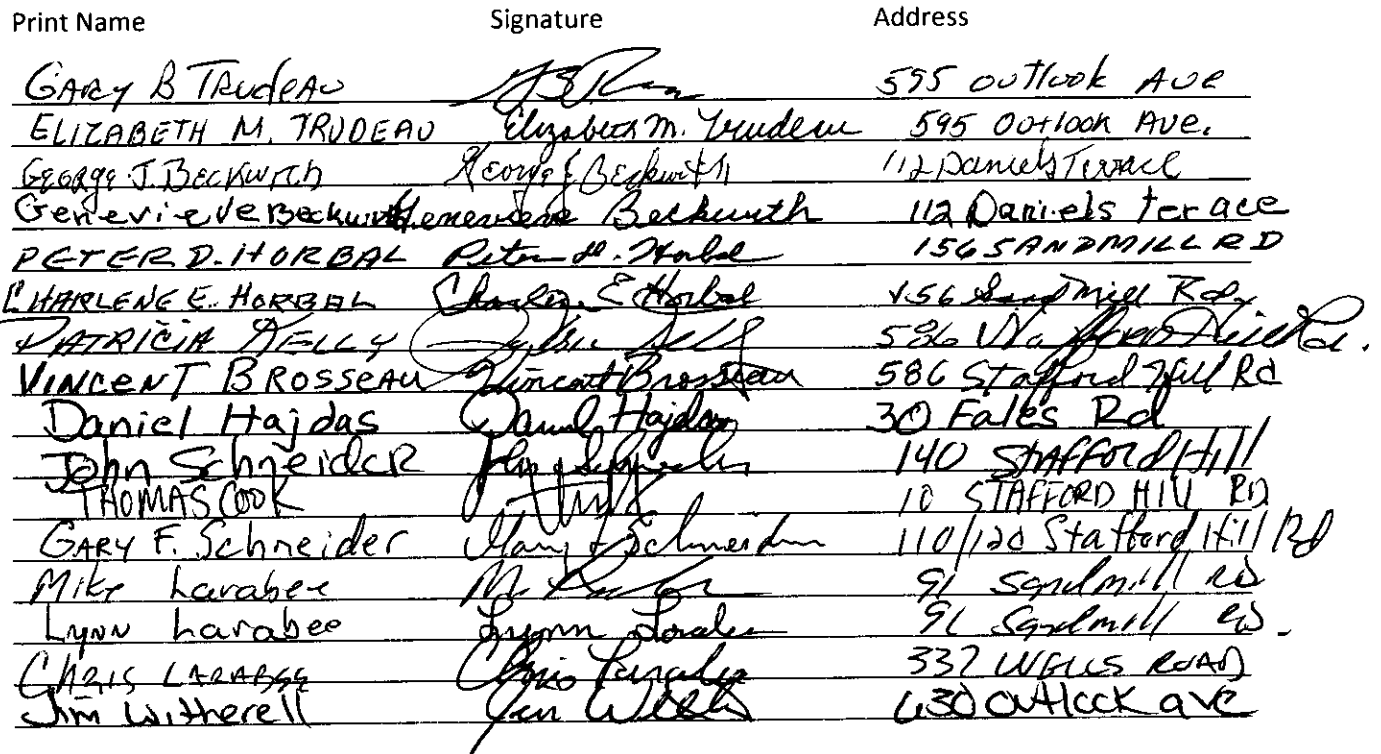 Print Name Signature Address
GARY B TRUDEAU 595 OUTLOOK AVE
ELIZABETH M. TRUDEAU Elizabeth M. Trudeau 595 Outlook AVE.
GEORGE J. BECKWITH George J Beckwith 112 Daniels Terrace
Genevieve Beckwith Genevieve Beckwith 112 Daniels terace
PETER D. HORBAL Peter D. Horbal 156 SANDMILL RD
CHARLENE E. HORBAL Charlene E Horbal 156 Sand Mill Rd
PATRICIA KELLY 586 Stafford Hill Rd.
VINCENT BROSSEAU Vincent Brosseau 586 Stafford Hill Rd
Daniel Hajdas Daniel Hajdas 30 Fales Rd
John SchneideR John Schneider 140 STAFFORd Hill
THOMAS COOK 10 STAFFORD HILL RD
GARY F. Schneider Gary F Schneider 110/120 Stafford Hill Rd
Mike Larabee 91 Sandmill RD
LYNN Larabee Lynn Larabee 91 Sandmill RD.
CHRIS LARABEE Chris Larabee 332 WELLS ROAD
Jim Witherell Jim 630 Outlook ave